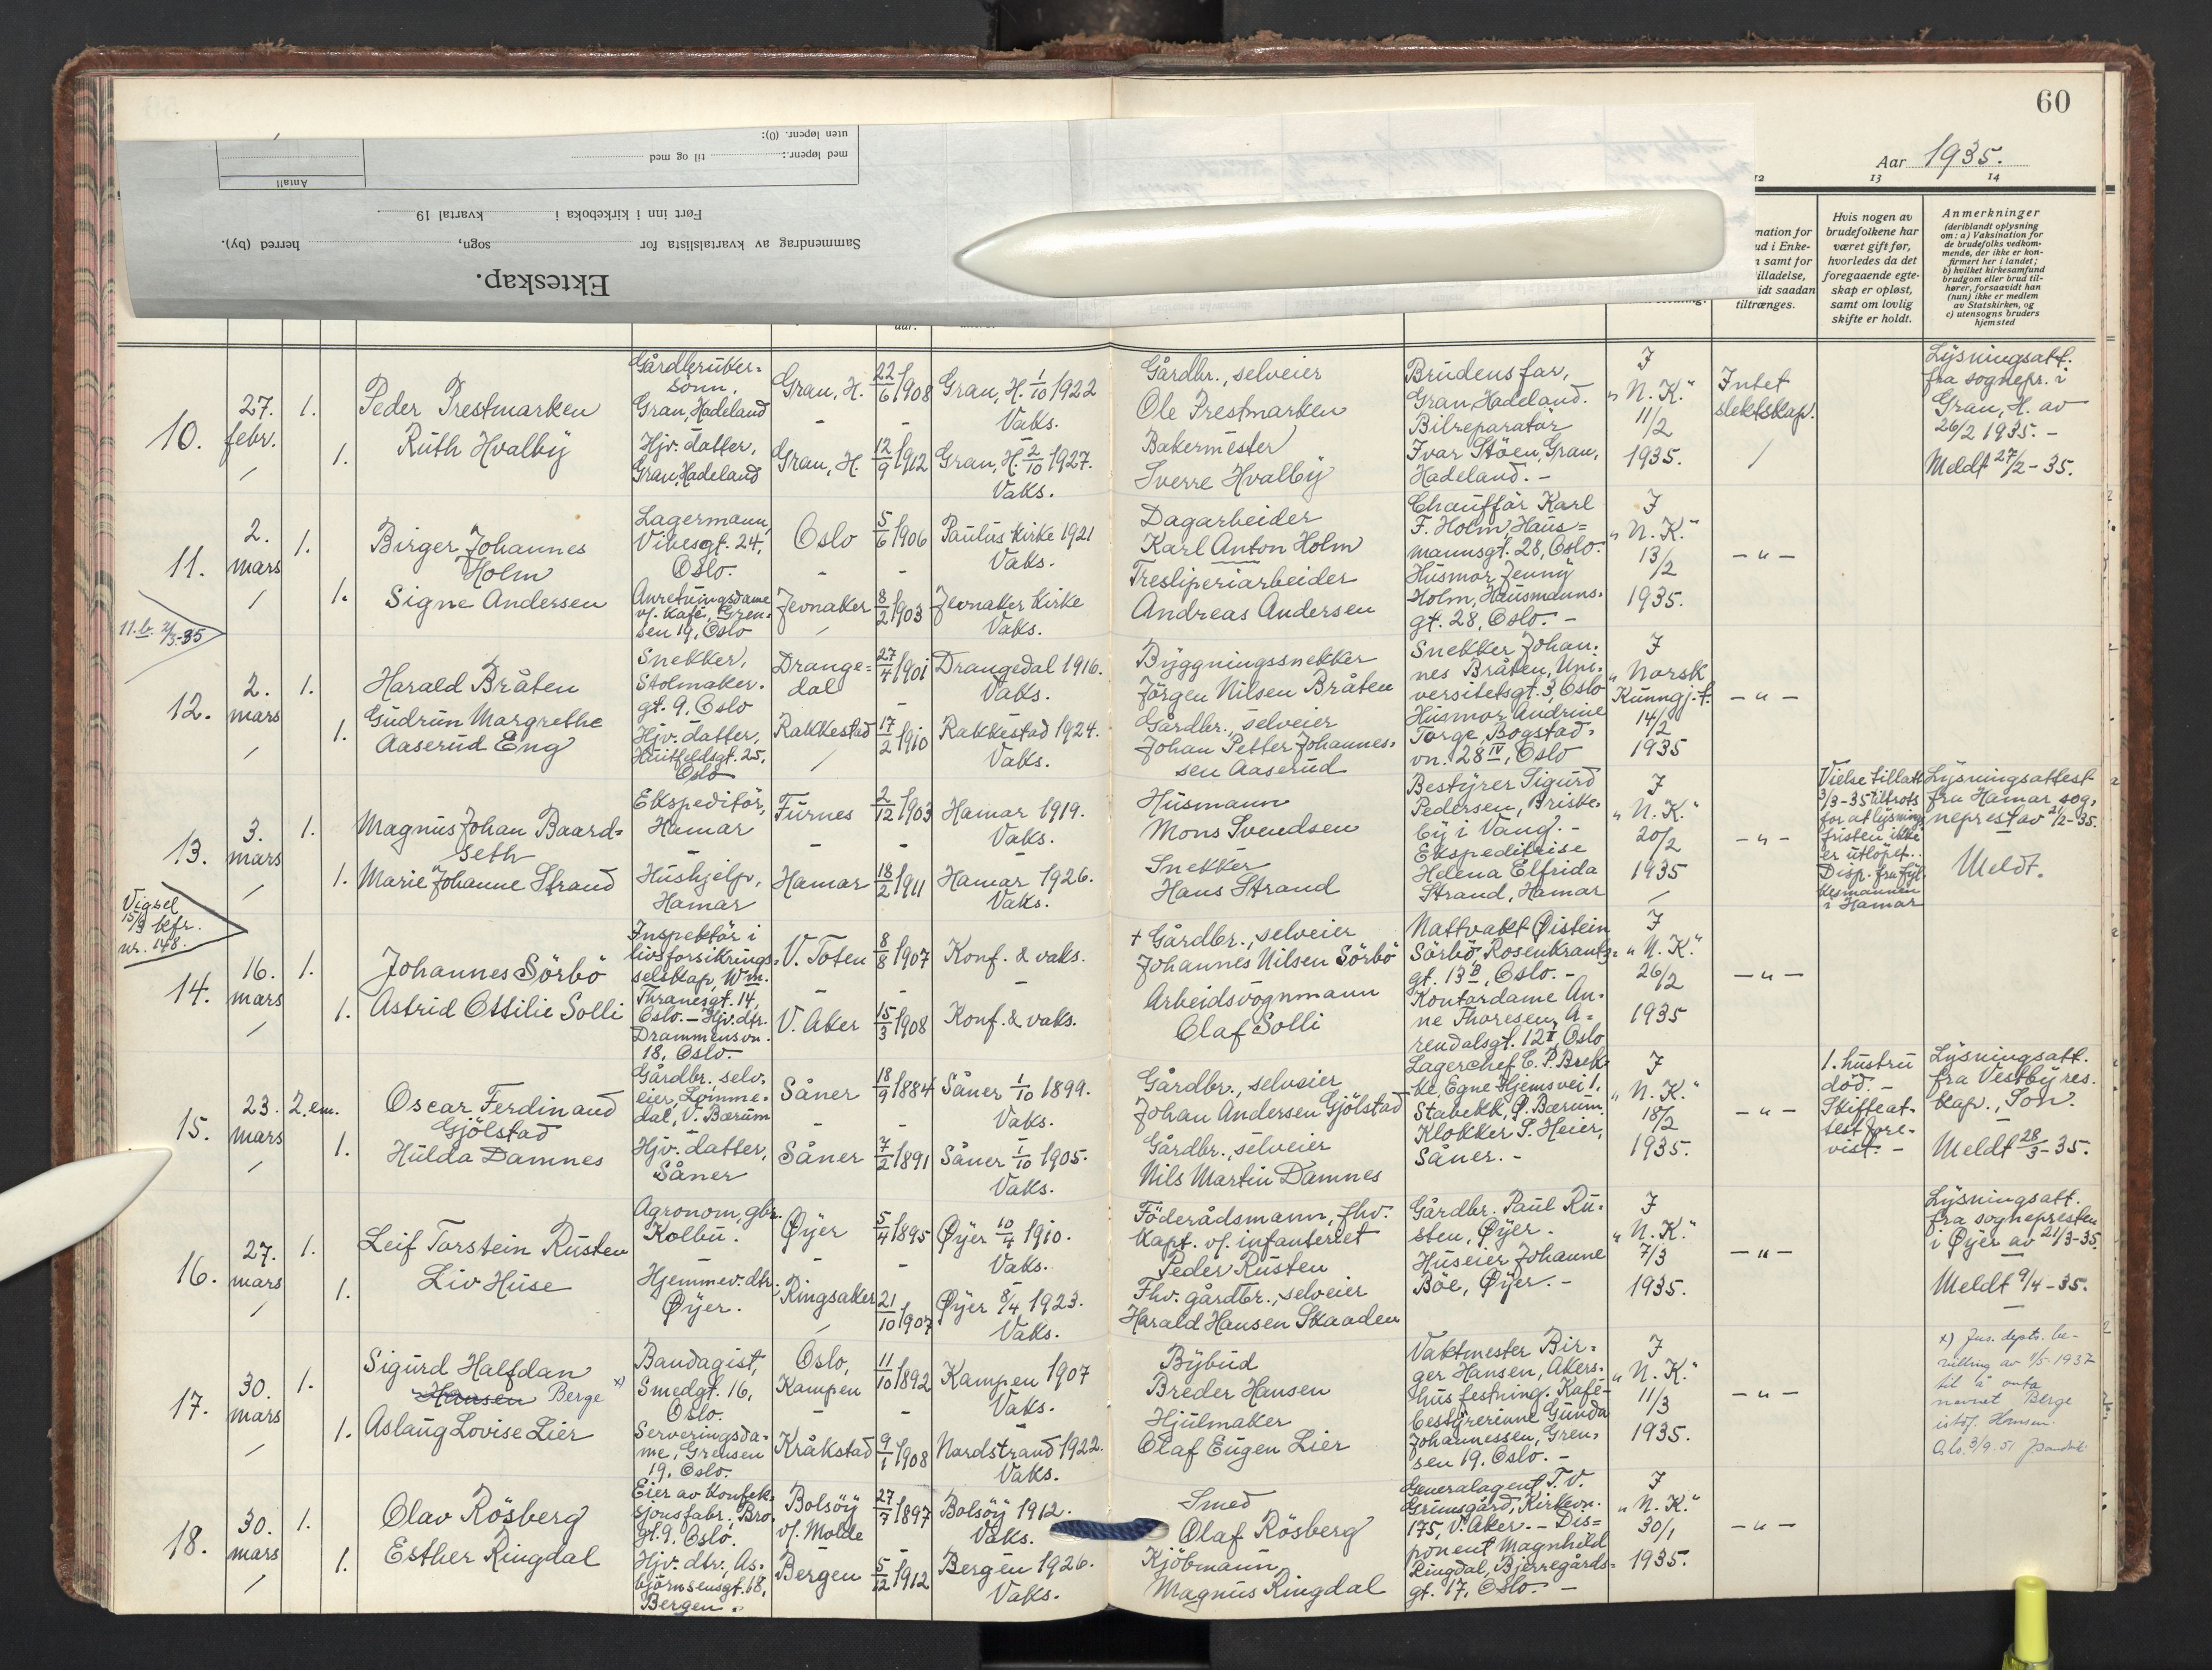 60
Aar 1935.
12
13
14
uten løpenr. (0):
med løpenr.: til og med
Antall
Ført inn i kirkeboka i kvartal 19
Sammendrag av kvartalslista for sogn, herred (by).
Ekteskap.
mation for
ud i Enke-
samt for
illadelse,
idt saadan
tiltrænges.
Hvis nogen av
brudefolkene har
været gift før,
hvorledes da det
foregaaende egte-
skap er opløst,
samt om lovlig
skifte er holdt.
Anmerkninger
(deriblandt oplysning
om: a) Vaksination for
de brudefolks vedkom-
mende, der ikke er kon-
firmert her i landet;
b) hvilket kirkesamfund
brudgom eller brud til-
hører, forsaavidt han
(hun) ikke er medlem
av Statskirken, og
c) utensogns bruders
hjemsted
10.
27.
febr.
1.
Peder Prestmarken
1.
Ruth Hvalby
Gårdbruker-
sönn,
Gran, Hadeland
Hjv. datter,
Gran, Hadeland
Gran, H.
22/6 1908
Gran, H. 1/10 1922
Vaks.
Gran, H.
12/9 1912
Gran, H. 2/10 1927.
Vaks.
Gårdbr., selveier
Ole Prestmarken
Bakermester
Sverre Hvalby
Brudens far,
Gran, Hadeland.
Bilreparatör
Ivar Stöen, Gran,
Hadeland. -
I
"N. K."
11/2
1935.
Intet
slektskap.
Lysningsatt.
fra sognepr. i
Gran, H. av
26/2 1935. -
Meldt 27/2 - 35.
11.
2.
mars
1.
Birger Johannes
Holm
1.
Signe Andersen
Lagermann,
Vibesgt. 24,
Oslo.
Anretningsdame
v/ Kafé, Gren-
sen 19, Oslo
Oslo
5/6 1906
Paulus kirke 1921
Vaks.
Jevnaker
8/2 1903
Jevnaker kirke
Vaks.
Dagarbeider
Karl Anton Holm
Tresliperiarbeider
Andreas Andersen
Chaufför Karl
F. Holm, Haus-
mannsgt. 28, Oslo.
Husmor Jenny
Holm, Hausmanns-
gt. 28, Oslo. -
I
"N. K."
13/2
1935.
- " -
11.b. 2/3-35
12.
2.
mars
1.
Harald Bråten
1.
Gudrun Margrethe
Aaserud Eng
Snekker,
Stolmaker-
gt. 9, Oslo
Hjv. datter,
Huitfeldsgt. 25,
Oslo
Drange-
dal
27/4 1901
Drangedal 1916.
Vaks.
Rakkestad
17/2 1910
Rakkestad 1924.
Vaks.
Byggningssnekker
Jörgen Nilsen Bråten
Gårdbr., selveier
Johan Petter Johannes-
sen Aaserud
Snekker Johan-
nes Bråten, Uni-
versitetsgt. 3, Oslo
Husmor Andrine
Torge, Bogstad-
vn. 28 IV, Oslo
I
"Norsk
Kunngj.t.
14/2
1935
- " -
13.
3.
mars
1.
Magnus Johan Baard-
seth
1.
Marie Johanne Strand
Ekspeditör,
Hamar
Hushjelp,
Hamar
Furnes
2/12 1903
Hamar 1919.
Vaks.
Hamar
18/2 1911
Hamar 1926.
Vaks.
Husmann
Mons Svendsen
Snekker
Hans Strand
Bestyrer Sigurd
Pedersen, Briske-
by i Vang. -
Ekspeditrise
Helena Elfrida
Strand, Hamar
I
"N. K."
20/2
1935
- " -
Vielse tillatt
3/3-35 tiltrots
for at lysnings
fristen ikke
er utlöpet.
Disp. fra fyl-
kesmannen
i Hamar
Lysningsattest
fra Hamar sog-
neprest av 2/2-35.
Meldt.
Vigsel
15/3 bkfr.
nr. 148.
14.
16.
mars
1.
Johannes Sörbö
1.
Astrid Ottilie Solli
Inspektör i
livsforsikrings-
selskap, Wm.
Thranesgt. 14,
Oslo. - Hjv. dtr.
Drammensvn.
18, Oslo.
V. Toten
8/8 1907
Konf. & vaks.
V. Aker
15/3 1908
Konf. & vaks.
+ Gårdbr., selveier
Johannes Nilsen Sörbö
Arbeidsvognmann
Olaf Solli
Nattvakt Øistein
Sörbö, Rosenkrantz-
gt. 13 B, Oslo. -
Kontordame An-
ne Thoresen, A-
rendalsgt. 12 I, Oslo
I
"N. K."
26/2
1935
- " -
15.
23.
mars
2. em.
Oscar Ferdinand
Gjölstad
1.
Hulda Damnes
Gårdbr., selv-
eier, Lomme-
dal, V. Bærum
Hjv. datter,
Såner
Såner
18/9 1884
Såner 1/10 1899.
Vaks.
Såner
7/2 1891
Såner 1/10 1905.
Vaks.
Gårdbr., selveier
Johan Andersen Gjölstad
Gårdbr., selveier
Nils Martin Damnes
Lagerchef C. P. Brek-
ke, Egne Hjemsvei 1,
Stabekk, Ø. Bærum.
Klokker S. Heier,
Såner. -
I
"N. K."
18/2
1935.
- " -
1. hustru
död. -
Skifteat-
test fore-
vist. -
Lysningsatt.
fra Vestby res.
kap., Son.
Meldt 28/3 - 35.
16.
27.
mars
1.
Leif Torstein Rusten
1.
Liv Huse
Agronom, gbr.
Kolbu.
Hjemmev. dtr.,
Øyer.
Øyer
5/4 1895
Øyer 10/4 1910.
Vaks.
Ringsaker
21/10 1907
Øyer 8/4 1923.
Vaks.
Föderådsmann, fhv.
kapt. v/ infanteriet
Peder Rusten
Fhv. gårdbr., selveier
Harald Hansen Skaaden
Gårdbr. Paul Ru-
sten, Øyer.
Huseier Johanne
Böe, Øyer. -
I
"N. K."
7/3
1935.
- " -
Lysningsatt.
fra sognepresten
i Øyer av 21/3-35.
Meldt 9/4 - 35.
17.
30.
mars
1.
Sigurd Halfdan
Hansen Berge x)
1.
Aslaug Lovise Lier
Bandagist,
Smedgt. 16,
Oslo.
Serveringsda-
me, Grensen
19, Oslo.
Oslo,
Kampen
11/10 1892
Kampen 1907
Vaks.
Kråkstad
9/1 1908
Nordstrand 1922.
Vaks.
Bybud
Breder Hansen
Hjulmaker
Olaf Eugen Lier
Vaktmester Bir-
ger Hansen, Akers-
hus festning. Kafé-
bestyrerinne Gunda
Johannessen, Gren-
sen 19, Oslo. -
I
"N. K."
11/3
1935.
- " -
x) Jus. depts. be-
villing av 1/5-1937
til å anta
navnet Berge
istdf. Hansen.
Oslo 3/9.51
18.
30.
mars
1.
Olav Rösberg
1.
Esther Ringdal
Eier av konfek-
sjonsfabr., Bro-
gt. 9, Oslo.
Hjv. dtr., As-
björnsensgt. 18,
Bergen.
Bolsöy
v/ Molde
27/7 1897
Bolsöy 1912.
Vaks.
Bergen
5/12 1912
Bergen 1926.
Vaks.
Smed
Olaf Rösberg
Kjöbmann
Magnus Ringdal
Generalagent T. V.
Grimsgård, Kirkevn.
175, V. Aker. - Dis-
ponent Magnhild
Ringdal, Bjerregårds-
gt. 17, Oslo. -
I
"N. K."
30/1
1935.
- " -